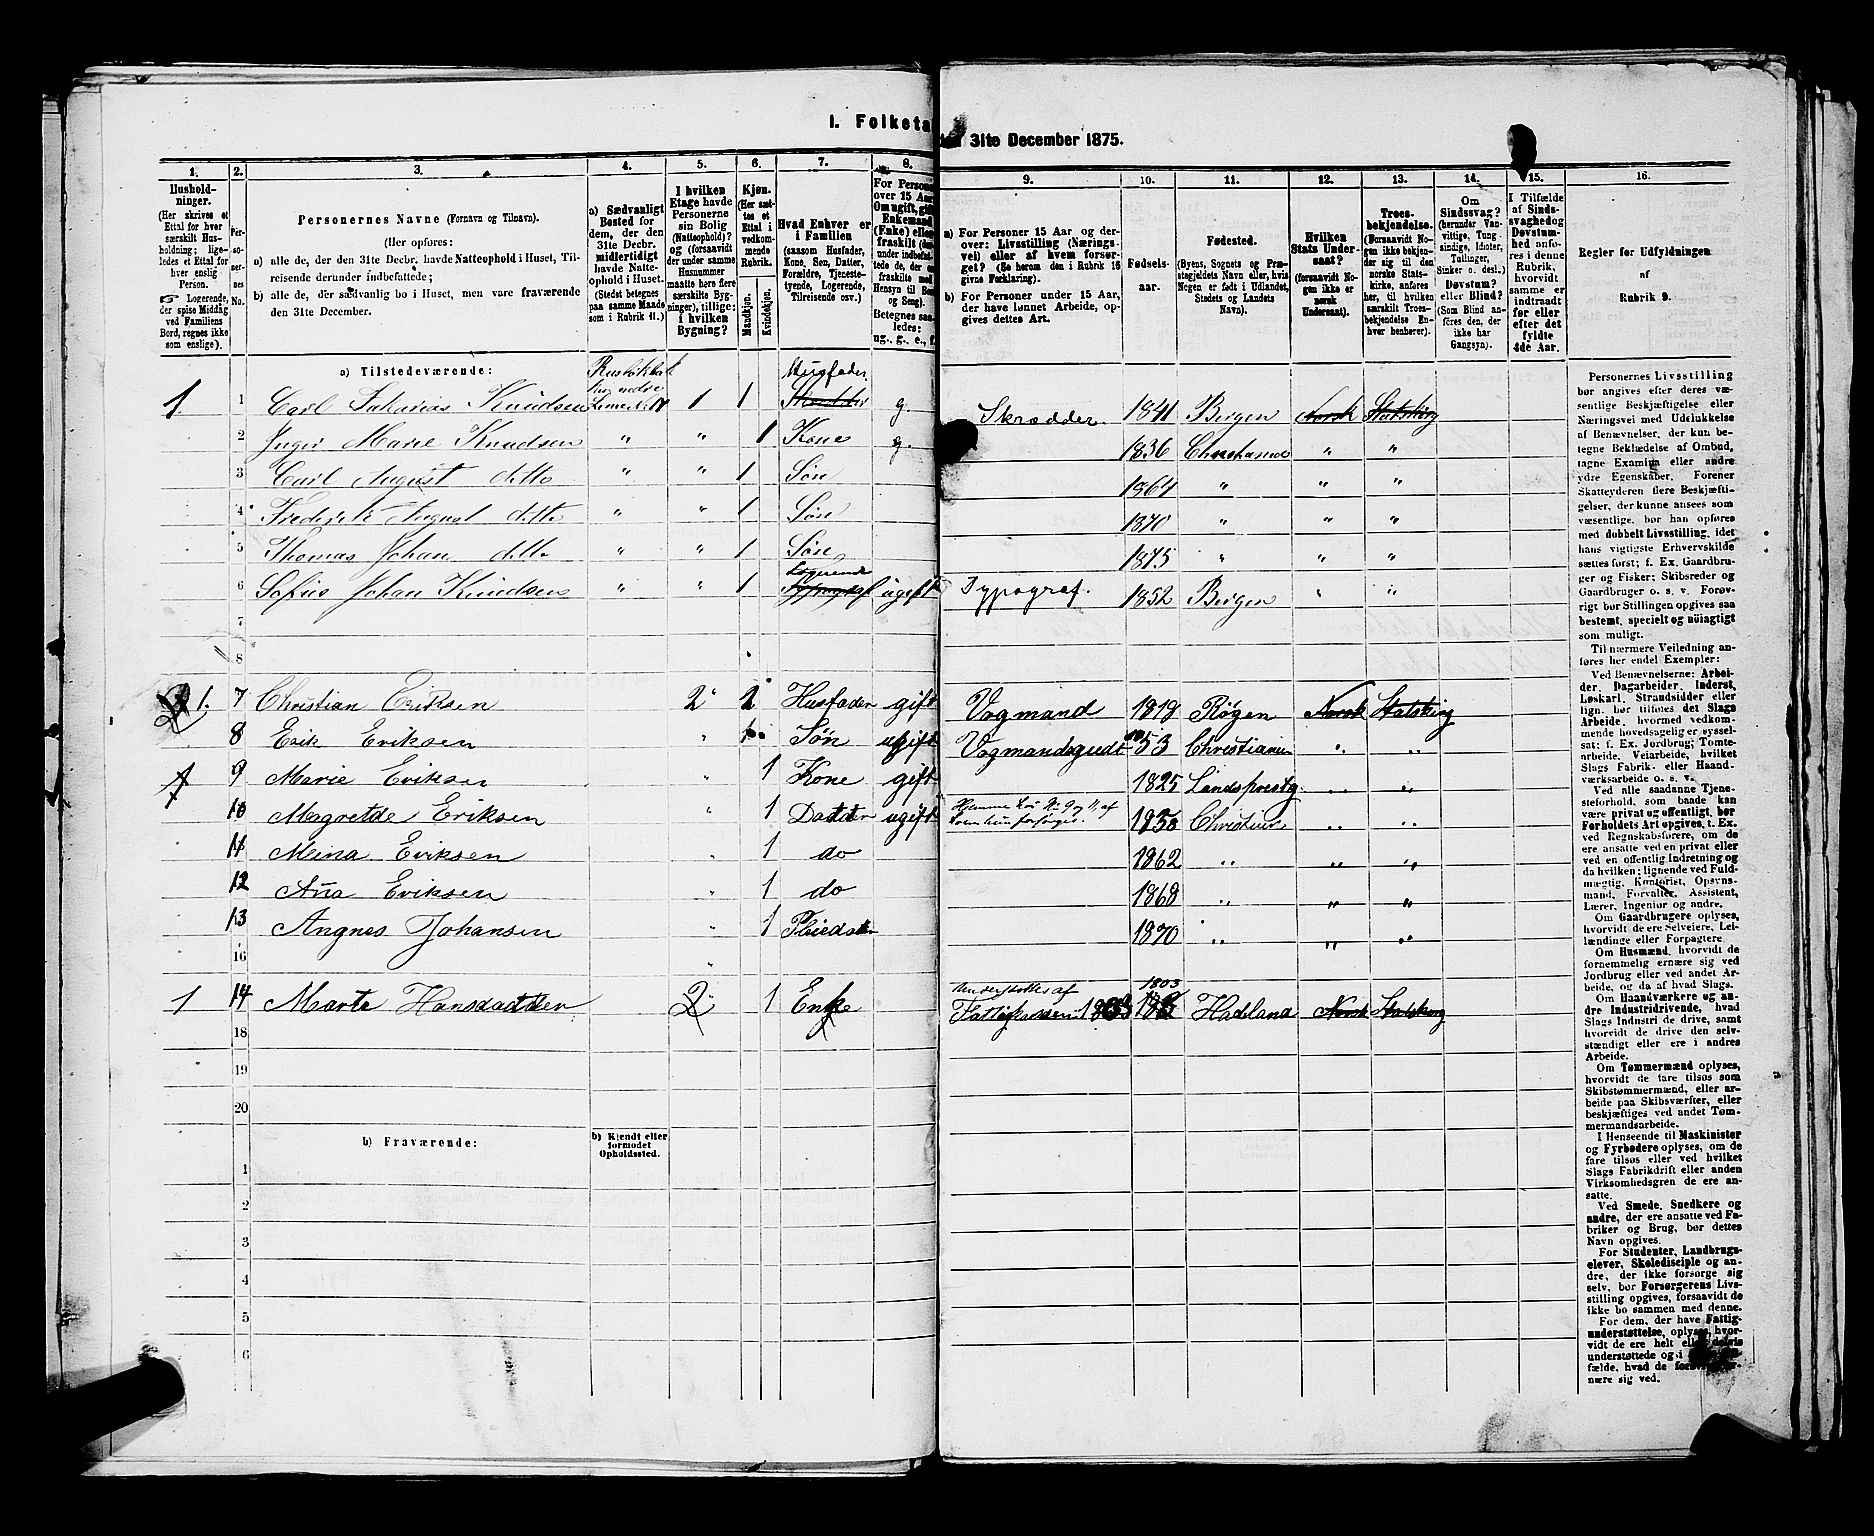 I. Folketa
den 31te December 1875.
1.
Hushold-
ninger.
(Her skrives et
Ettal for hver
særskilt Hus-
holdning; lige-
ledes et Ettal for
hver enslig
Person.
☞ Logerende,
der spise Middag
ved Familiens
Bord, regnes ikke
som enslige).
2.
Per-
so-
ner-
nes
No.
3.
Personernes Navne (Fornavn og Tilnavn).
(Her opføres:
a) alle de, der den 31te Decbr. havde Natteophold i Huset, Til-
reisende derunder indbefattede;
b) alle de, der sædvanlig bo i Huset, men vare fraværende
den 31te December.
4.
a) Sædvanligt
Bosted for
dem, der den
31te Decbr.
midlertidigt
havde Natte-
ophold i Huset.
(Stedet betegnes
paa samme Maade
som i Rubrik 11.)
5.
I hvilken
Etage havde
Personerne
sin Bolig
(Natteophold)?
og (forsaavidt
der under samme
Husnummer
maatte høre flere
særskilte Byg-
ninger), tillige:
i hvilken
Bygning?
6.
Kjøn.
(Her sæt-
tes et
Ettal i
vedkom-
mende
Rubrik.
Mandkjøn.
Kvindekjøn.
7.
Hvad Enhver er
i Familien
(saasom Husfader,
Kone, Søn, Datter,
Forældre, Tjeneste-
tyende, Logerende,
Tilreisende osv.)
8.
For Person
over 15 Aar
Om ugift, gif
Enkemand
(Enke) elle
fraskilt (de
under indbefat-
tede de, der e
fraskilte med
Hensyn til Bo
og Seng).
Betegnes saa-
ledes:
ug., g., e., f.
9.
a) For Personer 15 Aar og der-
over: Livsstilling (Nærings-
vei) eller af hvem forsør-
get? (Se herom den i Rubrik 16
givne Forklaring).
b) For Personer under 15 Aar,
der have lønnet Arbeide, op-
gives dettes Art.
10.
Fødsels-
aar.
11.
Fødested.
(Byens, Sognets og Præ-
stegjeldets Navn eller, hvis
Nogen er født i Udlandet,
Stedets og Landets
Navn).
12.
Hvilken
Stats Under-
saat?
(forsaavidt No-
gen ikke er
norsk
Undersaat).
13.
Troes-
bekjendelse.
(Forsaavidt No-
gen ikke bekjen-
der sig til den
norske Stats-
kirke, anføres
her, til hvilken
særskilt Troes-
bekjendelse En-
hver henhører).
14.
Om
Sindssvag?
(herunder Van-
vittige, Tung-
sindige, Idioter,
Tullinger,
Sinker o. desl.)
Døvstum?
eller Blind?
(Som Blind an-
føres den, der
ikke har
Gangsyn).
15.
I Tilfælde
af Sinds-
svaghed og
Døvstum-
hed anfø-
res i denne
Rubrik,
hvorvidt
samme er
indtraadt
før eller
efter det
fyldte
4de Aar.
16.
Regler for Udfyldningen
af
Rubrik 9.
a) Tilstedeværende:
1 1 Carl Zakarias Knudsen 1 1 Husfader g. Skrædder 1841 Bergen Norsk Statskirg
2 Inger Marie Knudsen " " 1 Kone g. 1836 Christiania " "
3 Carl August ditto " " 1 Søn 1864 " " "
4 Frederik August ditto " " 1 Søn 1870 " " "
5 Thomas Johan ditto " " 1 Søn 1875 " " "
Logerende
6 Sofus Johan Knudsen " " 1 ugift Typograf. 1852 Bergen " "
7
8
1. 7 Christian Eriksen 2 1 Husfader gift Vogmand 1818 Røgen Norsk Statskirg
8 Erik Eriksen " 1 Søn ugift Vogmandsgudt 53 Christiania " "
9 Marie Eriksen " 1 Kone gift 1825 Landsprestg. " "
10 Magretde Eriksen " 1 Datter ugift Hjemme hos No 9 og 11, af hvem hun forsørges. 1850 Christian " "
11 Meina Eriksen " 1 do 1862 " " "
12 Ana Eriksen " 1 do 1868 " " "
13 Angnes Johansen " 1 Pleiedatter 1870 " " "
16
1 14 Marte Hansdadtter 2 1 Enke Understøttes af Fattigkassen 1803 Hadeland Norsk Statskirg
18
19
20
b) Fraværende:
b) Kjendt eller
formodet
Opholdssted.
1
2
3
4
5
6
Personernes Livsstilling
bør angives efter deres væ-
sentlige Beskjæftigelse eller
Næringsvei med Udelukkelse
af Benævnelser, der kun be-
tegne Beklædelse af Ombud,
tagne Examina eller andre
ydre Egenskaber. Forener
Skatteyderen flere Beskjæfti-
gelser, der kunne ansees som
væsentlige, bør han opføres
med dobbelt Livsstilling, idet
hans vigtigste Erhvervskilde
sættes først; f. Ex. Gaardbru-
ger og Fisker; Skibsreder og
Gaardbruger o. s. v. Forøv-
rigt bør Stillingen opgives saa
bestemt, specielt og nøiagtigt
som muligt.
Til nærmere Veiledning an-
føres her endel Exempler:
Ved Benævnelserne: Arbei-
der, Dagarbeider, Inderst,
Løskarl, Strandsidder eller
lign. bør tilføies det Slags
Arbeide, hvormed vedkom-
mende hovedsagelig er syssel-
sat; f. Ex. Jordbrug; Tomte-
arbeide, Veiarbeide, hvilket
Slags Fabrik- eller Haand-
værksarbeide o. s. v.
Ved alle saadanne Tjene-
steforhold, som baade kan
være privat og offentligt, bør
Forholdets Art opgives, t. Ex.
ved Regnskabsførere, om de
ere ansatte ved en privat eller
ved en offentlig Indretning og
da hvilken; lignende ved Fuld-
mægtig, Kontorist, Opsyns-
mand, Forvalter, Assistent,
Lærer, Ingeniør og andre.
Om Gaardbrugere oplyses,
hvorvidt de ere Selveiere, Lei-
lændinge eller Forpagtere.
Om Husmænd, hvorvidt de
fornemmelig ernære sig ved
Jordbrug eller ved andet Ar-
beide, og da af hvad Slags.
Om Haandværkere og an-
dre Industridrivende, hvad
Slags Industri de drive, samt
hvorvidt de drive den selv-
stændigt eller ere i andres
Arbeide.
Om Tømmermænd oplyses,
hvorvidt de fare tilsøs som
Skibstømmermænd, eller ar-
beide paa Skibsværfter, eller
beskjæftiges ved andet Tøm-
mermandsarbeide.
I Henseende til Maskinister
og Fyrbødere oplyses, om de
fare tilsøs eller ved hvilket
Slags Fabrikdrift eller anden
Virksomhedsgren de ere an-
satte.
Ved Smede, Snedkere og
andre, der ere ansatte ved Fa-
briker og Brug, bør dettes
Navn opgives.
For Studenter, Landbrugs-
elever, Skoledisciple og an-
dre, der ikke forsørge sig
selv, bør Forsørgerens Livs-
stilling opgives, forsaavidt de
ikke bo sammen med denne.
For dem, der have Fattig-
understøttelse, oplyses, hvor-
vidt de ere helt eller delvis
understøttede og i
fælde, hvad de
nære sig ved.